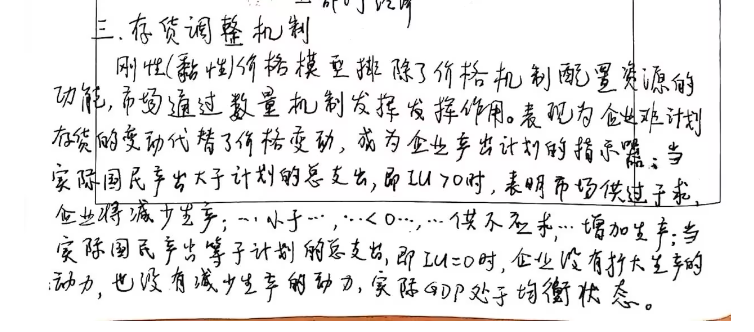 三、存货调整机制
刚性(黏性)价格模型排除了价格机制配置资源的
功能,市场通过数量机制发挥发挥作用。表现为企业难计划
存货的变动代替了价格变动,成为企业产出计划的指示器;当
实际国民产出大于计划的总支出,即IU>0时,表明市场供过于求,
企业将减少生产;…小于…,…<0…,…供不应求,…增加生产;当
实际国民产出等于计划的总支出,即IU=0时,企业没有扩大生产的
动力,也没有减少生产的动力,实际GDP处于均衡状态。